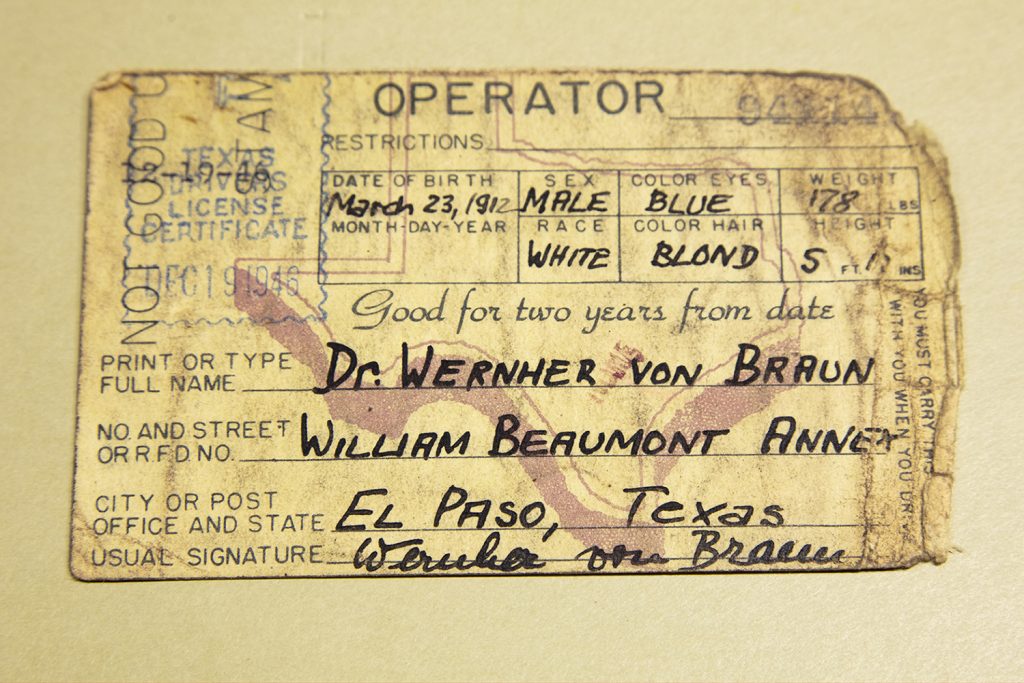 OPERATOR
RESTRICTIONS
NOT GOOD
TEXAS
DRIVERS
LICENSE
CERTIFICATE
DEC 19 1946
DATE OF BIRTH SEX COLOR EYES WEIGHT
March 23, 1912 MALE BLUE 178 LBS
MONTH-DAY-YEAR RACE COLOR HAIR HEIGHT
WHITE BLOND 5 FT. INS
Good for two years from date
PRINT OR TYPE
FULL NAME Dr. WERNHER VON BRAUN
NO. AND STREET
OR R.F.D NO. WILLIAM BEAUMONT ANNEX
CITY OR POST
OFFICE AND STATE EL PASO, Texas
USUAL SIGNATURE Wernher von Braun
YOU MUST CARRY THIS
WITH YOU WHEN YOU